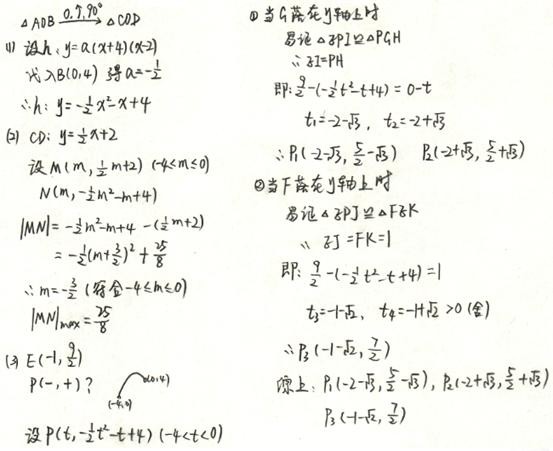 △AOB 0.↑.90° △COD
(1) 设h: y=a(x+4)(x-2)
代入B(0,4) 得a=-1/2
∴h: y=-1/2x²-x+4
(2) CD: y=1/2x+2
设M(m, 1/2m+2) (-4≤m≤0)
N(m, -1/2m²-m+4)
|MN|=-1/2m²-m+4-(1/2m+2)
=-1/2(m+3/2)²+25/8
∴m=-3/2 (符合-4≤m≤0)
|MN|max=25/8
(3) E(-1, 9/2)
P(-,+)?
(0,4)
(-4,0)
设P(t, -1/2t²-t+4) (-4<t<0)
①当G落在y轴上时
易证△EPI≌△PGH
∴EI=PH
即: 9/2-(-1/2t²-t+4)=0-t
t₁=-2-√3, t₂=-2+√3
∴P₁(-2-√3, 5/2-√3) P₂(-2+√3, 5/2+√3)
②当F落在y轴上时
易证△EPJ≌△FEK
∴EJ=FK=1
即: 9/2-(-1/2t²-t+4)=1
t₃=-1-√2, t₄=-1+√2>0(舍)
∴P₃(-1-√2, 7/2)
综上: P₁(-2-√3, 5/2-√3), P₂(-2+√3, 5/2+√3)
P₃(-1-√2, 7/2)